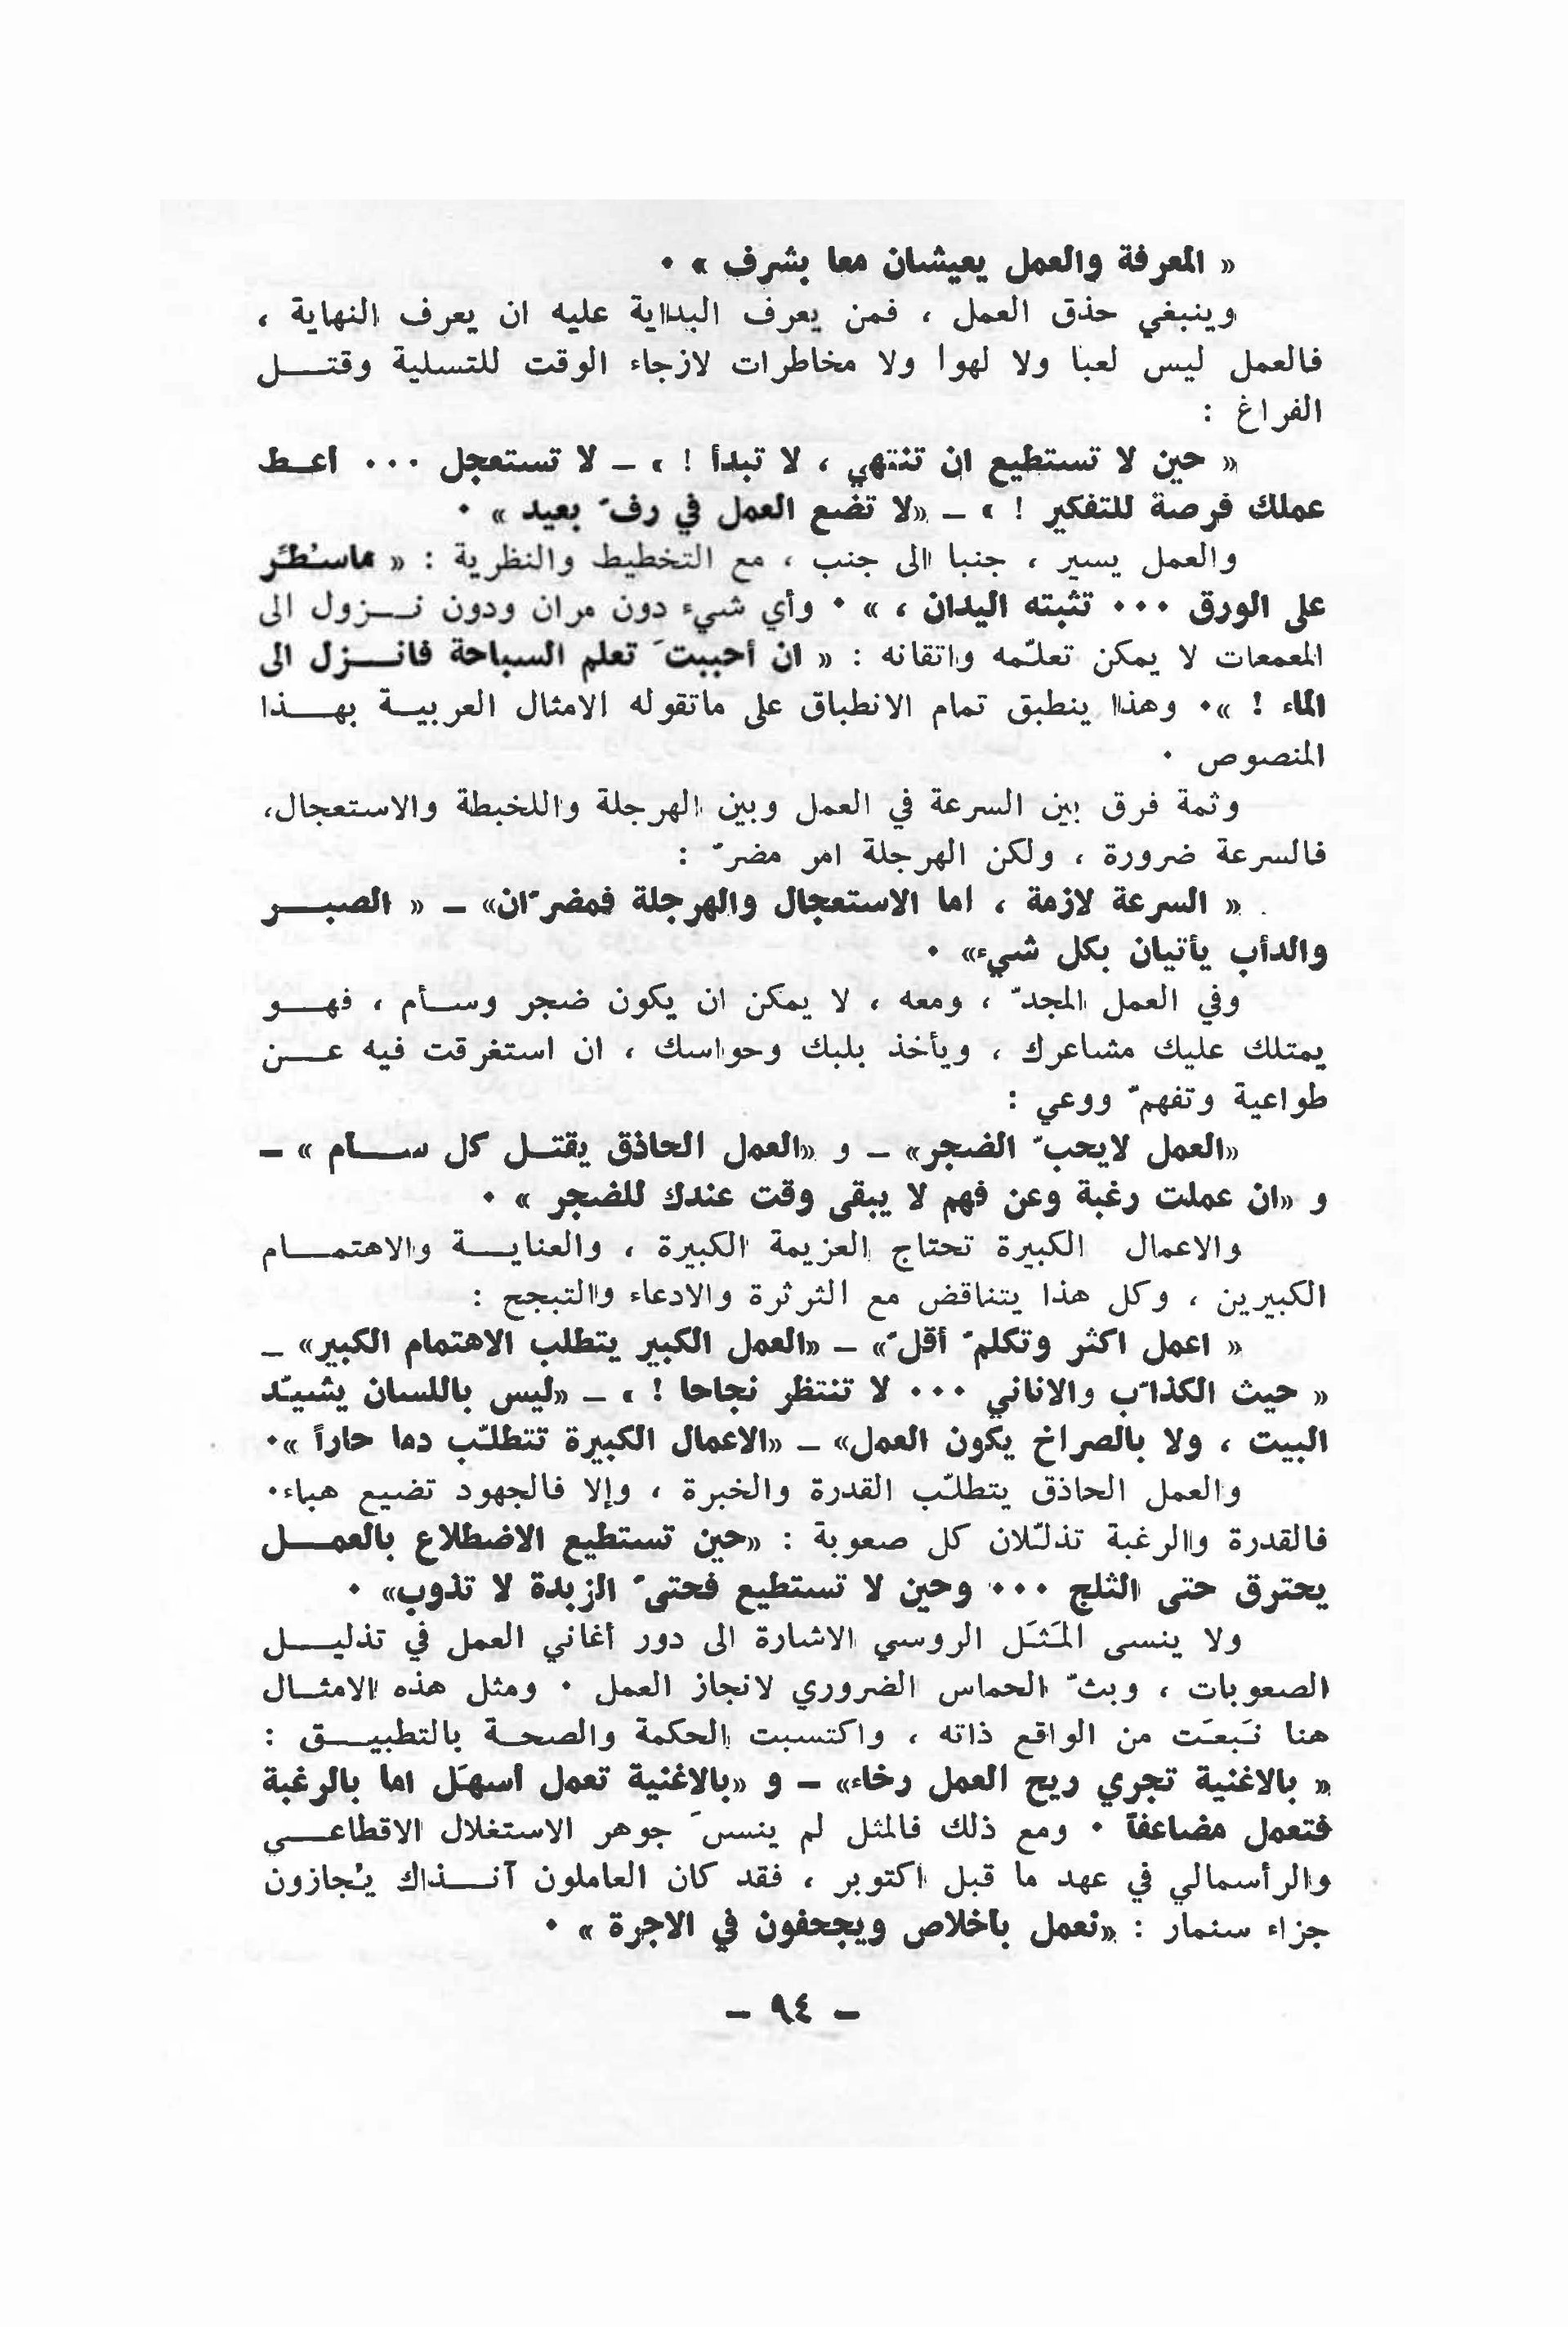 « المعرفة والعمل يعيشان معا بشرف » ٠
وينبغي حذق العمل ، فمن يعرف البداية عليه ان يعرف النهاية ،
فالعمل ليس لعبا ولا لهوا ولا مخاطرات لازجاء الوقت للتسلية وقتـــل
الفراغ :
« حين لا تستطيع ان تنتهي ، لا تبدأ ! » ـ لا تستعجل ٠٠٠ اعـط
عملك فرصة للتفكير ! » ـ «لا تضع العمل في رفّ بعيد » ٠
والعمل يسير ، جنبا الى جنب ، مع التخطيط والنظرية : « ماسُطّر
على الورق ٠٠٠ تثبته اليدان ، » ٠ وأي شيء دون مران ودون نـــزول الى
المعمعات لا يمكن تعلّمه واتقانه : « ان أحببتَ تعلم السباحة فانـــزل الى
الماء ! »٠ وهذا ينطبق تمام الانطباق على ماتقوله الامثال العربيـة بهـــذا
المنصوص ٠
وثمة فرق بين السرعة في العمل وبين الهرجلة واللخبطة والاستعجال،
فالسرعة ضرورة ، ولكن الهرجلة امر مضرّ :
« السرعة لازمة ، اما الاستعجال والهرجلة فمضرّان» ـ « الصبـــر
والدأب يأتيان بكل شيء» ٠
وفي العمل المجدّ ، ومعه ، لا يمكن ان يكون ضجر وسـأم ، فهـــو
يمتلك عليك مشاعرك ، ويأخذ بلبك وحواسك ، ان استغرقت فيه عـــن
طواعية وتفهمّ ووعي :
«العمل لايحبّ الضجر» ـ و «العمل الحاذق يقتـل كل ســـأم » ـ
و «ان عملت رغبة وعن فهم لا يبقى وقت عندك للضجر » ٠
والاعمال الكبيرة تحتاج العزيمة الكبيرة ، والعنايـــة والاهتمـــام
الكبيرين ، وكل هذا يتناقض مع الثرثرة والادعاء والتبجح :
« اعمل اكثر وتكلمّ أقلّ» ـ «العمل الكبير يتطلب الاهتمام الكبير» ـ
« حيث الكذاّب والاناني ٠٠٠ لا تنتظر نجاحا ! » ـ «ليس باللسان يشيّد
البيت ، ولا بالصراخ يكون العمل» ـ «الاعمال الكبيرة تتطلّب دما حاراً »٠
والعمل الحاذق يتطلّب القدرة والخبرة ، وإلا فالجهود تضيع هباء٠
فالقدرة والرغبة تذلّلان كل صعوبة : «حين تستطيع الاضطلاع بالعمـــل
يحترق حتى الثلج ٠٠٠ وحين لا تستطيع فحتىّ الزبدة لا تذوب» ٠
ولا ينسى المَثَل الروسي الاشارة الى دور أغاني العمل في تذليـــل
الصعوبات ، وبثّ الحماس الضروري لانجاز العمل ٠ ومثل هذه الامثـال
هنا نَبعَت من الواقع ذاته ، واكتسبت الحكمة والصحـة بالتطبيـــق :
« بالاغنية تجري ريح العمل رخاء» ـ و «بالاغنية تعمل اسهَل اما بالرغبة
فتعمل مضاعفاً ٠ ومع ذلك فالمثل لم ينسَ جوهر الاستغلال الاقطاعـــي
والرأسمالي في عهد ما قبل اكتوبر ، فقد كان العاملون آنـــذاك يُجازون
جزاء سنمار : «نعمل باخلاص ويجحفون في الاجرة » ٠
ـ ٩٤ ـ